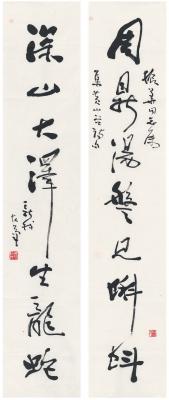 振華同志屬
周鼎湯盤見蝌蚪
集黃山谷詩句
深山大澤生龍蛇
新我
左筆